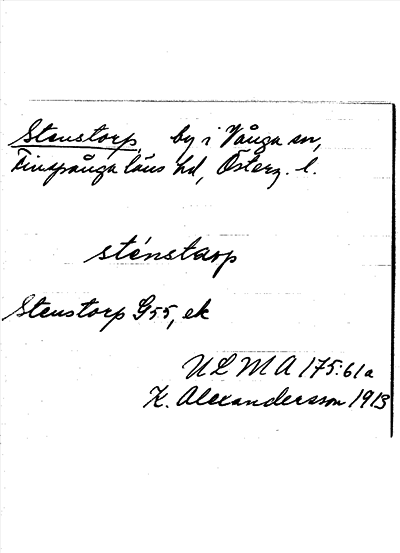 Stenstorp, by i Vånga sn,
Finspånga läns hd, Österg. l.
sténstarp
Stenstorp G55, ek
ULMA 175:61a
K. Alexandersson 1913